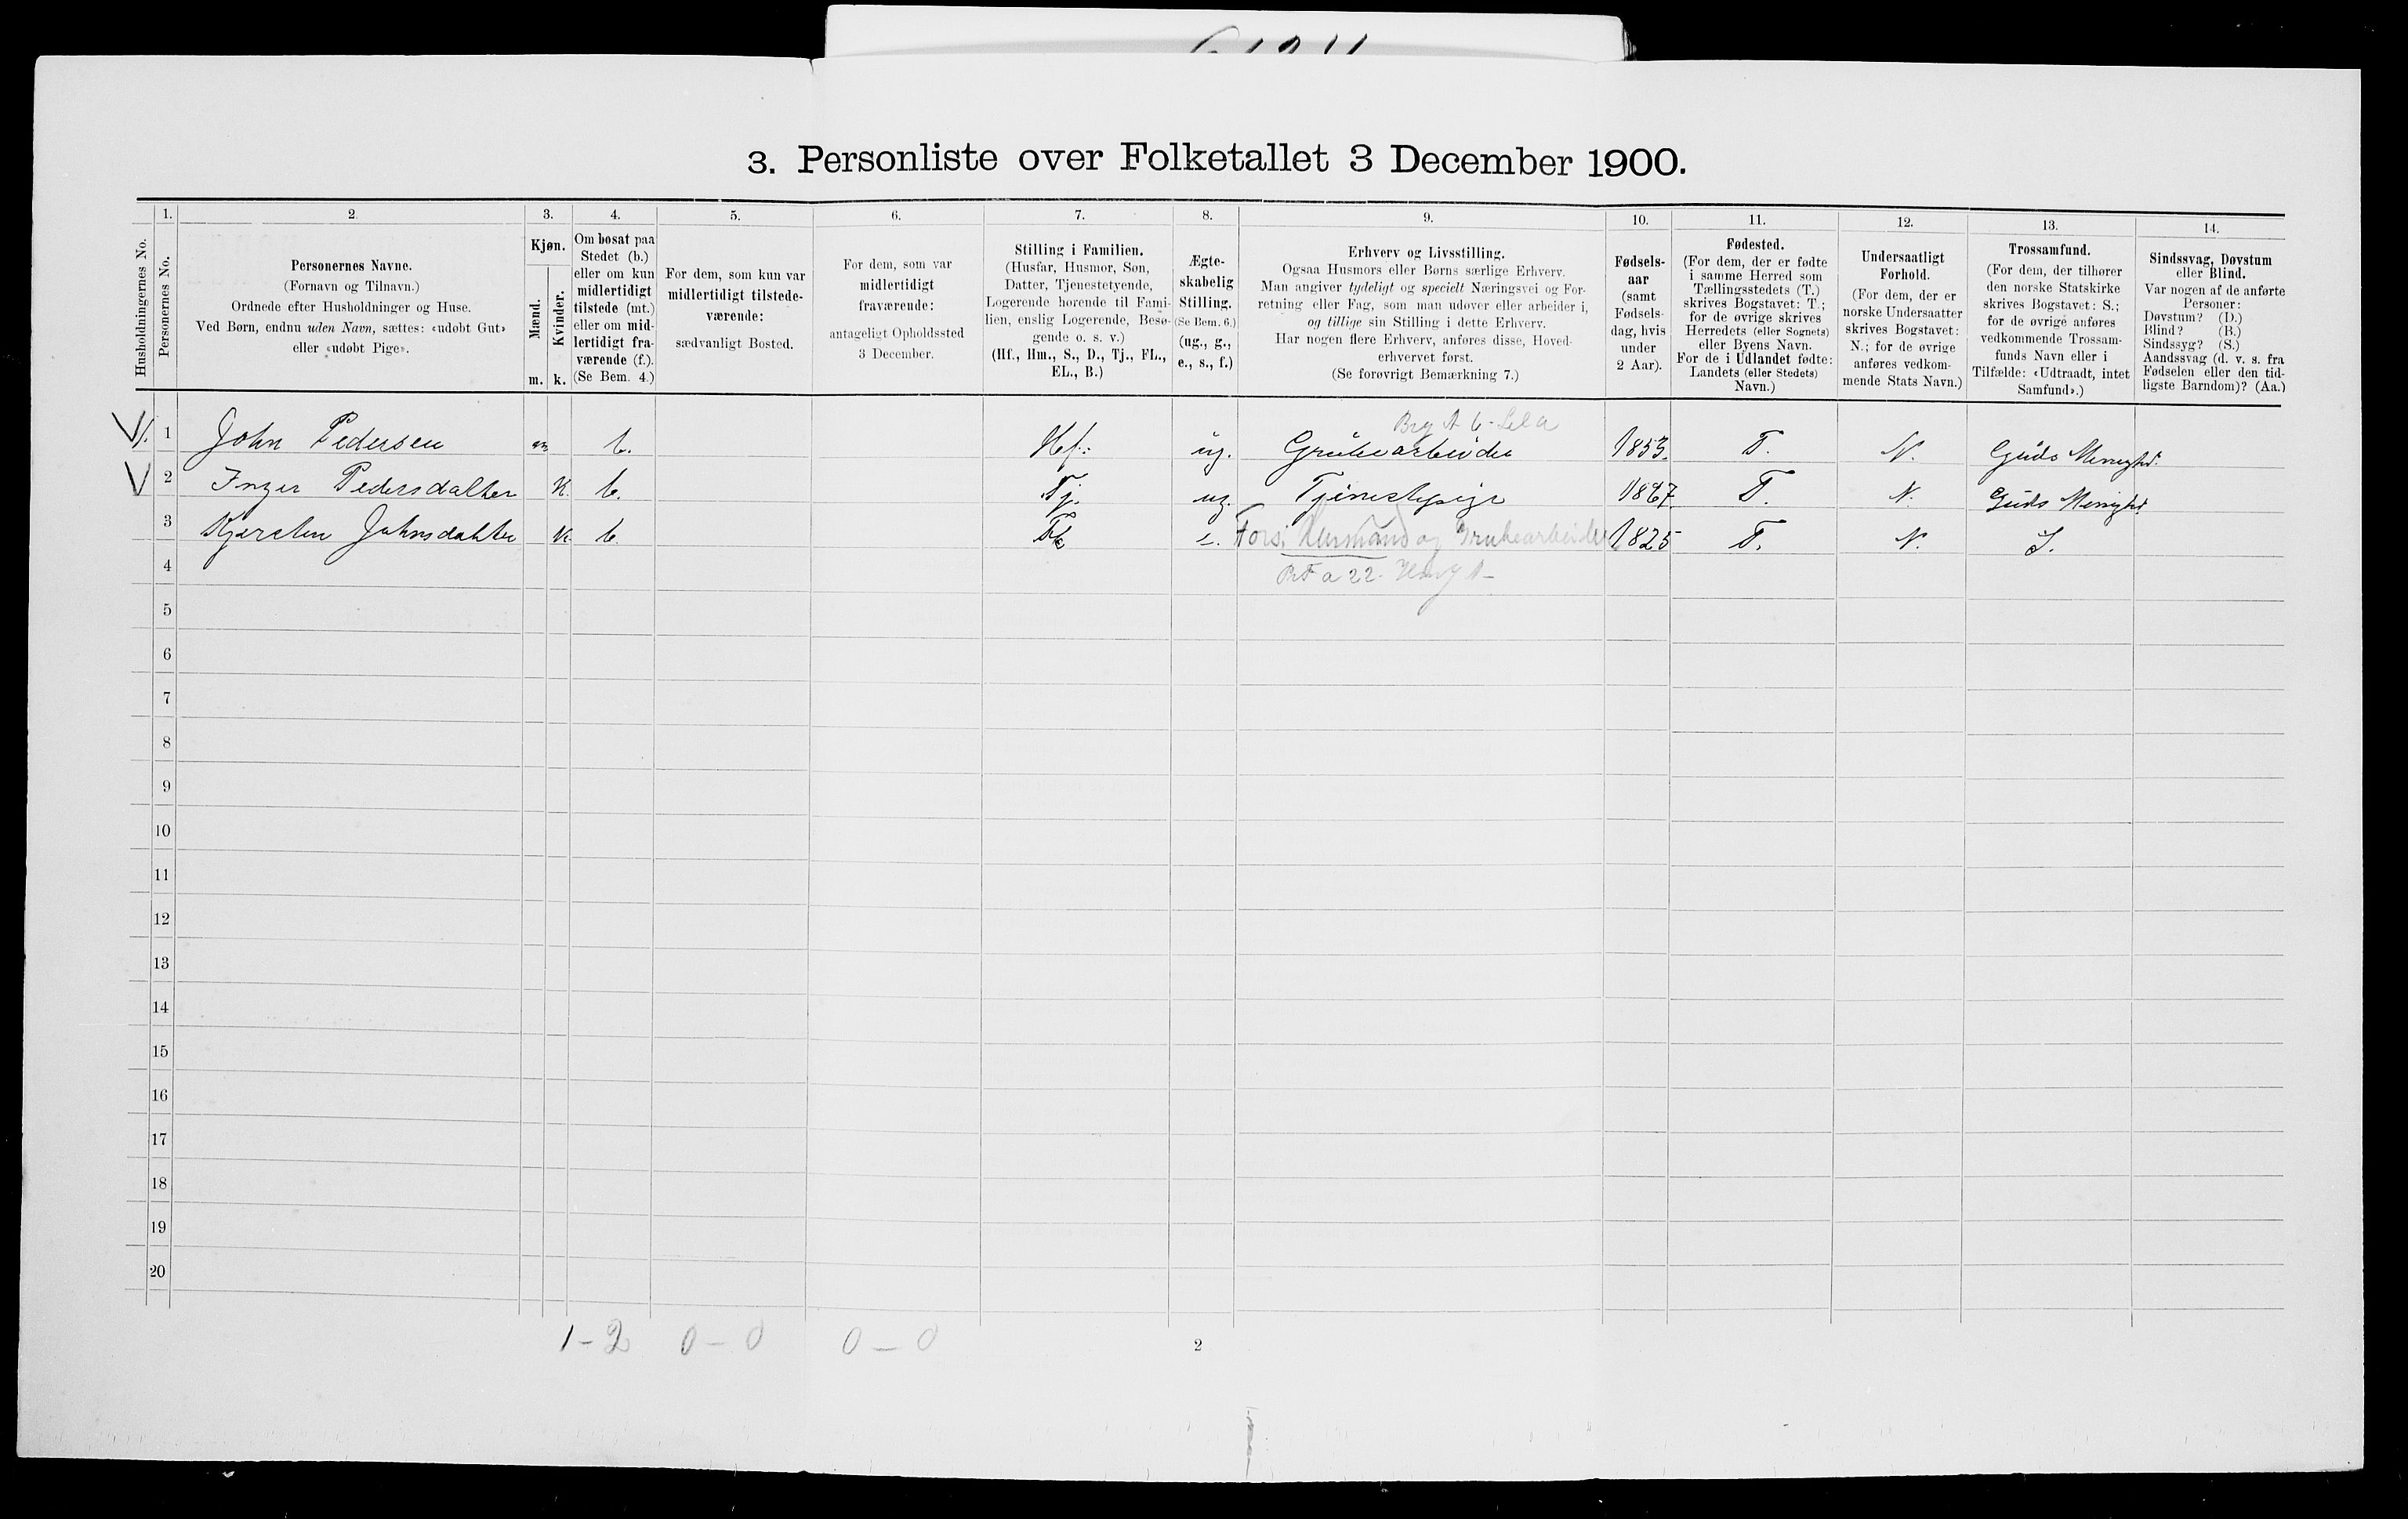 3. Personliste over Folketallet 3 December 1900.
Husholdningernes No.
1.
Personernes No.
2.
Personernes Navne.
(Fornavn og Tilnavn.)
Ordnede efter Husholdninger og Huse.
Ved Børn, endnu uden Navn, sættes: «udøbt Gut»
eller «udøbt Pige».
3.
Kjøn.
Mænd.
m.
Kvinder.
k.
4.
Om bosat paa
Stedet (b.)
eller om kun
midlertidigt
tilstede (mt.)
eller om mid-
lertidigt fra-
værende (f.).
(Se Bem. 4.)
5.
For dem, som kun var
midlertidigt tilstede-
værende:
sædvanligt Bosted.
6.
For dem, som var
midlertidigt
fraværende:
antageligt Opholdssted
3 December.
7.
Stilling i Familien.
(Husfar, Husmor, Søn,
Datter, Tjenestetyende,
Logerende hørende til Fami-
lien, enslig Logerende, Besø-
gende o. s. v.)
(Hf., Hm., S., D., Tj., FL.,
EL., B.)
8.
Ægte-
skabelig
Stilling.
(Se Bem. 6.)
(ug., g.,
e., s., f.)
9.
Erhverv og Livsstilling.
Ogsaa Husmors eller Børns særlige Erhverv.
Man angiver tydeligt og specielt Næringsvei og For-
retning eller Fag, som man udøver eller arbeider i,
og tillige sin Stilling i dette Erhverv.
Har nogen flere Erhverv, anføres disse, Hoved-
erhvervet først.
(Se forøvrigt Bemærkning 7.)
10.
Fødsels-
aar
(samt
Fødsels-
dag, hvis
under
2 Aar).
11.
Fødested.
(For dem, der er fødte
i samme Herred som
Tællingsstedets (T.)
skrives Bogstavet: T.;
for de øvrige skrives
Herredets (eller Sognets)
eller Byens Navn.
For de i Udlandet fødte:
Landets (eller Stedets)
Navn.)
12.
Undersaatligt
Forhold.
(For dem, der er
norske Undersaatter
skrives Bogstavet:
N.; for de øvrige
anføres vedkom-
mende Stats Navn.)
13.
Trossamfund.
(For dem, der tilhører
den norske Statskirke
skrives Bogstavet: S.;
for de øvrige anføres
vedkommende Trossam-
funds Navn eller i
Tilfælde: «Udtraadt, intet
Samfund».)
14.
Sindssvag, Døvstum
eller Blind.
Var nogen af de anførte
Personer:
Døvstum? (D.)
Blind? (B.)
Sindssyg? (S.)
Aandssvag (d. v. s. fra
Fødselen eller den tid-
ligste Barndom)? (Aa.)
1 John Pedersen m b. Hf. ug. Grubearbeider 1853. T. N. Guds Menighd.
2 Inger Pedersdatter K. b. Tj. ug. Tjenestepige 1867. T. N. Guds Menighd
3 Kjersten Johnsdatter K. b. e. Fors. Husmand og Grubearbeider 1825 T. N. S.
4
5
6
7
8
9
10
11
12
13
14
15
16
17
18
19
20
1 - 2 0 - 0 0 - 0 2